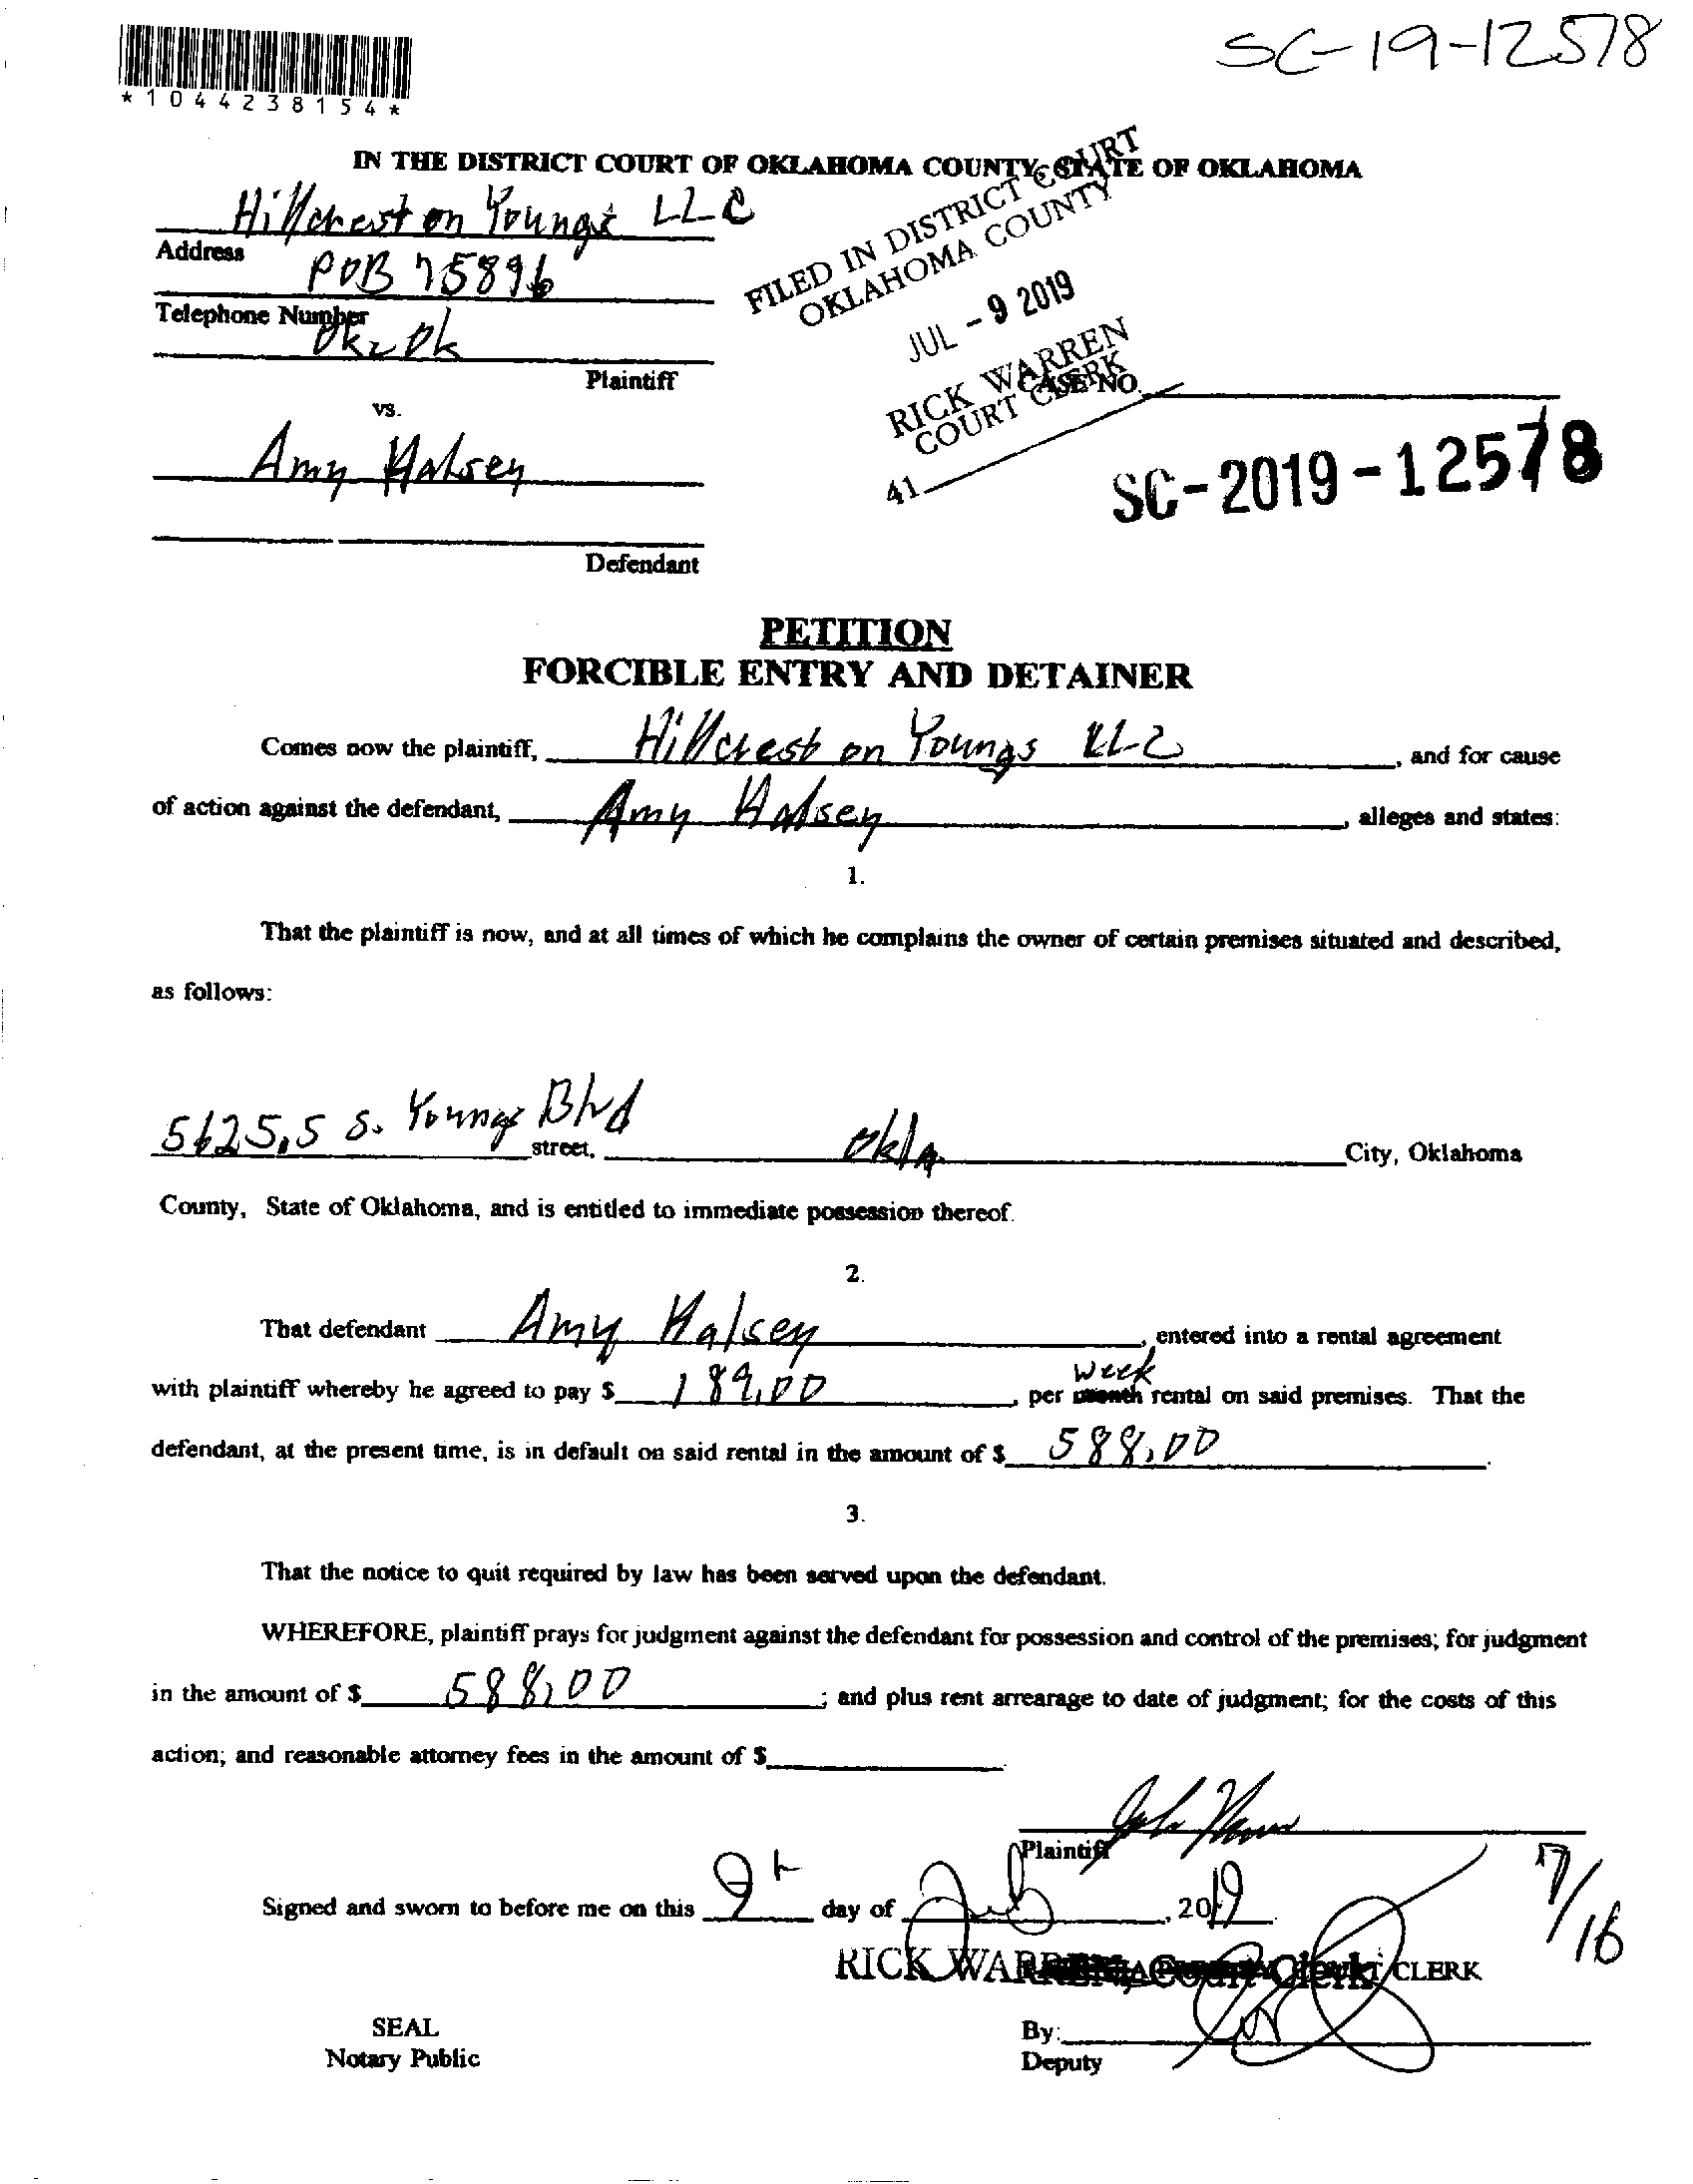 SC-19-12578
*1044238154*
IN THE DISTRICT COURT OF OKLAHOMA COUNTY, STATE OF OKLAHOMA
Hillcrest on Youngs LLC
Address
POB 75896
Telephone Number
Okc Ok
Plaintiff
vs.
Amy Halsey
Defendant
FILED IN DISTRICT COURT
OKLAHOMA COUNTY
JUL - 9 2019
RICK WARREN
COURT CLERK
41
CASE NO.
SC-2019-12578
PETITION
FORCIBLE ENTRY AND DETAINER
Comes now the plaintiff, Hillcrest on Youngs LLC, and for cause
of action against the defendant, Amy Halsey, alleges and states:
1.
That the plaintiff is now, and at all times of which he complains the owner of certain premises situated and described,
as follows:
5625.5 S. Youngs Blvd street, Okla City, Oklahoma
County, State of Oklahoma, and is entitled to immediate possession thereof.
2.
That defendant Amy Halsey, entered into a rental agreement
week
with plaintiff whereby he agreed to pay $ 189.00, per month rental on said premises. That the
defendant, at the present time, is in default on said rental in the amount of $ 588.00.
3.
That the notice to quit required by law has been served upon the defendant.
WHEREFORE, plaintiff prays for judgment against the defendant for possession and control of the premises; for judgment
in the amount of $ 588.00; and plus rent arrearage to date of judgment; for the costs of this
action; and reasonable attorney fees in the amount of $
Plaintiff
Signed and sworn to before me on this 9th day of July, 2019
7/16
RICK WARREN, Court Clerk CLERK
SEAL
Notary Public
By:
Deputy